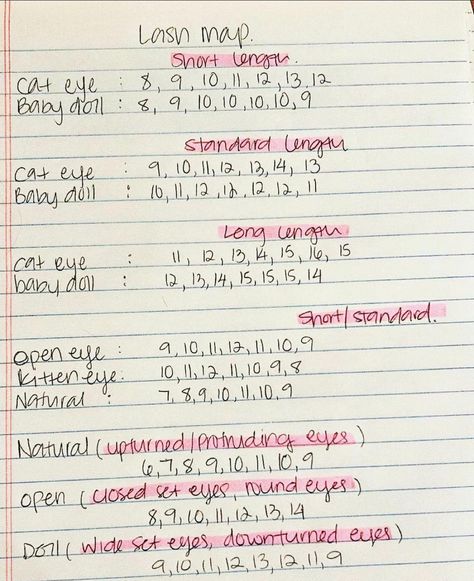 Lash map.
Short length.
Cat eye : 8, 9, 10, 11, 12, 13, 12
Baby doll : 8, 9, 10, 10, 10, 10, 9
Standard length
Cat eye : 9, 10, 11, 12, 13, 14, 13
Baby doll : 10, 11, 12, 12, 12, 12, 11
Long length
cat eye : 11, 12, 13, 14, 15, 16, 15
baby doll : 12, 13, 14, 15, 15, 15, 14
Short/standard.
open eye : 9, 10, 11, 12, 11, 10, 9
Kitten eye: 10, 11, 12, 11, 10, 9, 8
Natural : 7, 8, 9, 10, 11, 10, 9
Natural (upturned/protruding eyes)
6, 7, 8, 9, 10, 11, 10, 9
open (closed set eyes, round eyes)
8, 9, 10, 11, 12, 13, 14
Doll (wide set eyes, downturned eyes)
9, 10, 11, 12, 13, 12, 11, 9